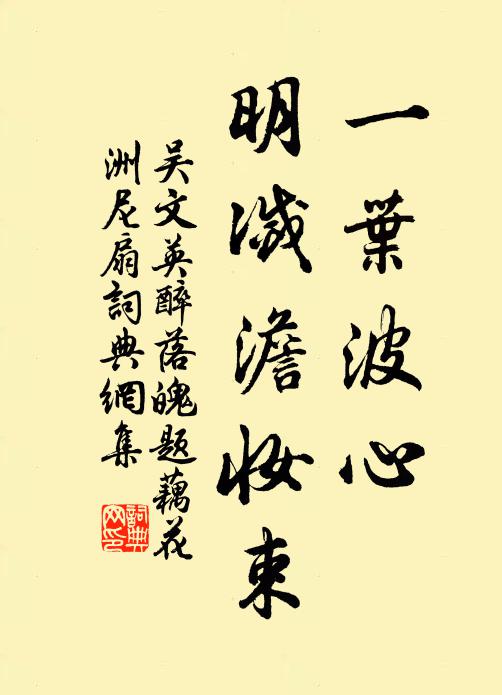 一葉波心
明滅澹妝束
吴文英醉落魄題藕花
洲尼扇詞典網集
詞典
网印